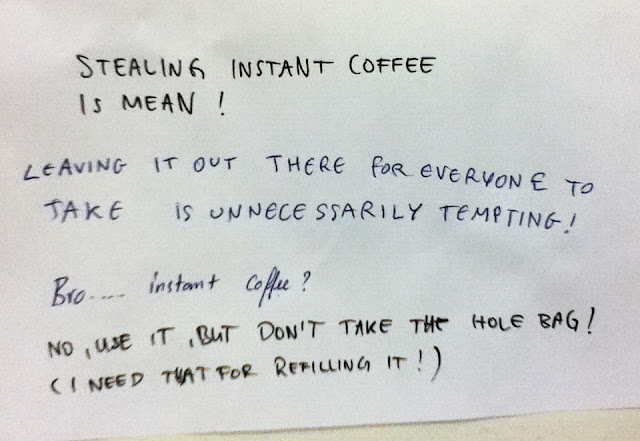 STEALING INSTANT COFFEE
IS MEAN !
LEAVING IT OUT THERE FOR EVERYONE TO
TAKE IS UNNECESSARILY TEMPTING!
Bro..... instant coffee?
NO, USE IT, BUT DON'T TAKE THE HOLE BAG!
(I NEED THAT FOR REFILLING IT!)